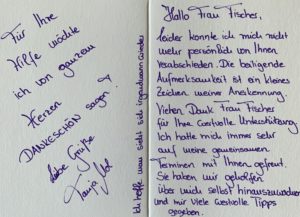 Für Ihre
Hilfe möchte
ich von ganzem
Herzen
DANKESCHÖN sagen!
Liebe Grüße
Tanja
Ich hoffe man sieht sich irgendwann wieder
Hallo Frau Fischer,
leider konnte ich mich nicht
mehr persönlich von Ihnen
verabschieden. Die beiliegende
Aufmerksamkeit ist ein kleines
Zeichen meiner Anerkennung.
Vielen Dank Frau Fischer
für Ihre wertvolle Unterstützung.
Ich hatte mich immer sehr
auf meine gemeinsamen
Terminen mit Ihnen gefreut.
Sie haben mir geholfen
über mich selbst hinauszuwachsen
und mir viele wertvolle Tipps
gegeben.